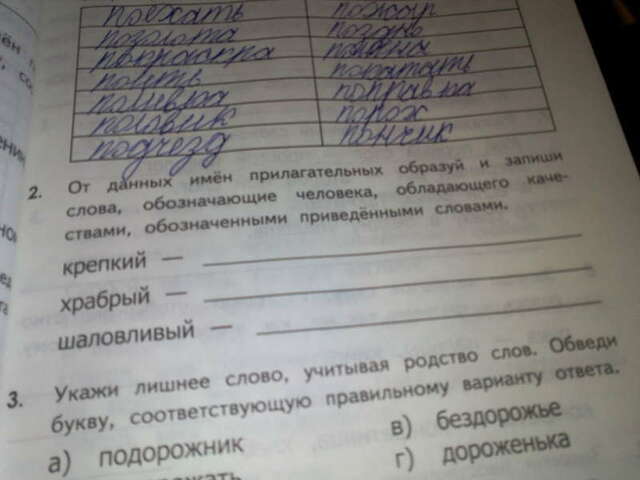 поехать
позолота
покраска
полить
половик
подъезд
покатать
поправка
порох
пончик
2. От данных имён прилагательных образуй и запиши
слова, обозначающие человека, обладающего каче-
ствами, обозначенными приведёнными словами.
крепкий —
храбрый —
шаловливый —
3. Укажи лишнее слово, учитывая родство слов. Обведи
букву, соответствующую правильному варианту ответа.
а) подорожник
в) бездорожье
г) дороженька